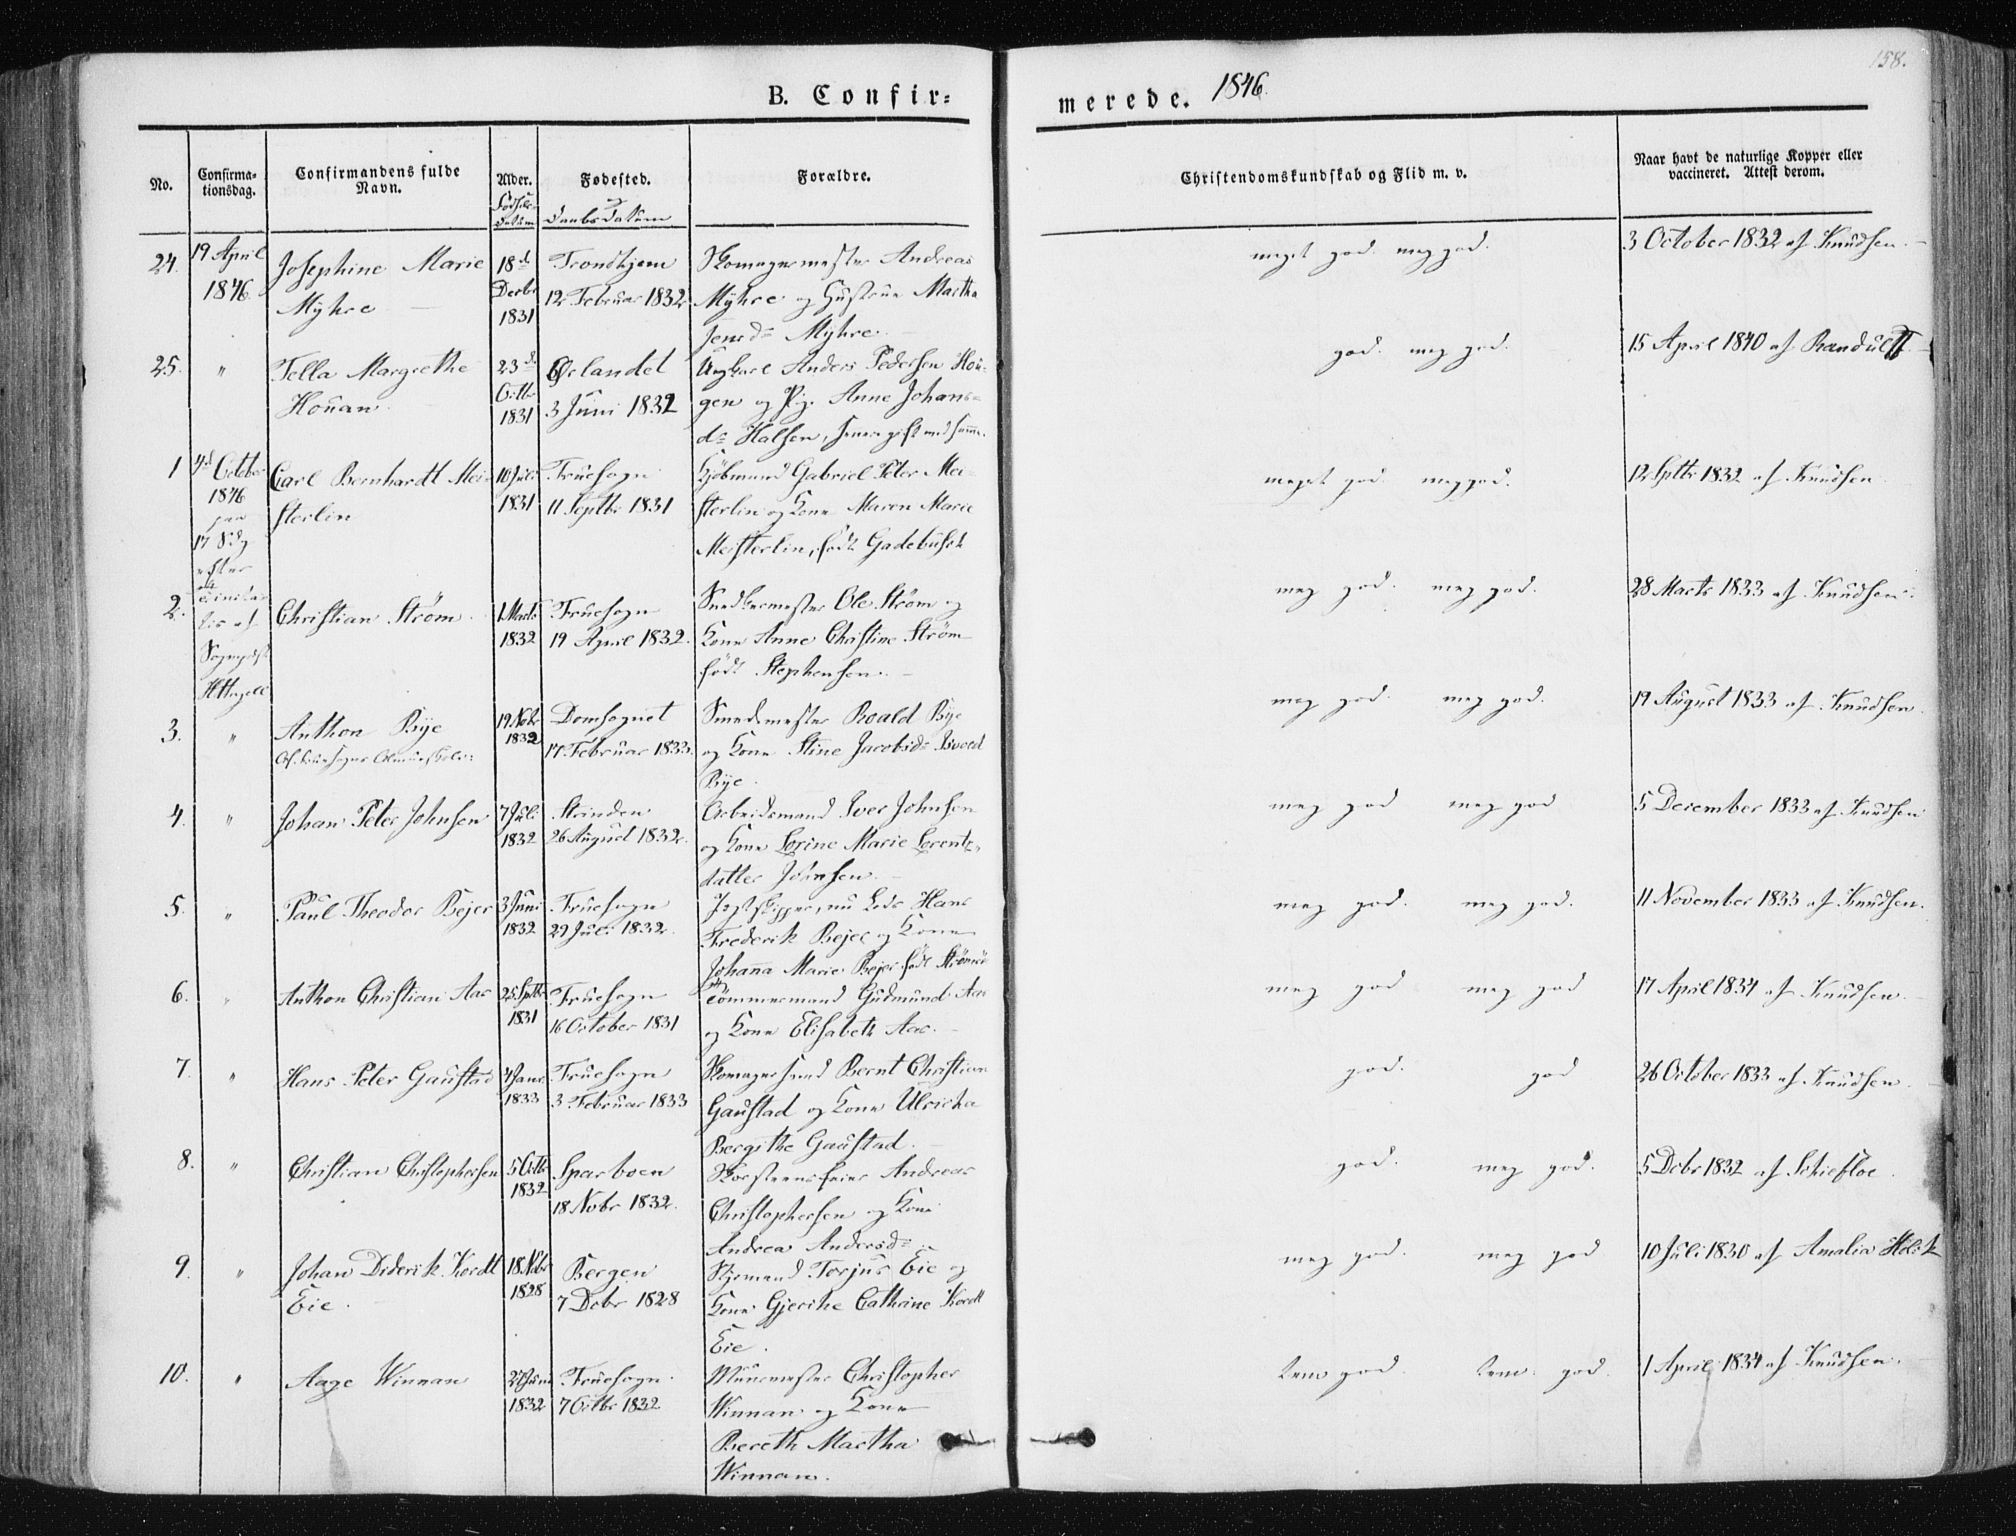 158.
B. Confir=
merede. 1846.
No.
Confirma-
tionsdag.
Confirmandens fulde
Navn.
Alder.
Fødsels-
datum
Fødested.
Daabsdatum
Forældre.
Christendomskundskab og Flid m. v.
Naar havt de naturlige Kopper eller
vaccineret. Attest derom.
24.
19 April
1846.
Josephine Marie
Myhre
18d
Decbr
1831
Trondhjem
12 Februar 1832
Skomagermester Andreas
Myhre og Hustrue Martha
Jensd= Myhre.
meget god. meg god.
3 October 1832 af Knudsen.
25.
"
Tella Margrethe
Houan
23d
Octbr
1831
Ørlandet
3 Juni 1832
Ungkarl Anders Pedersen Hou-
gen og Pig. Anne Johans-
d= Halsen, senere gift med samme.
god. meg god.
15 April 1840 af Randulff
1
4d October
1846
paa
17 Sdg
efter
Trinita-
tis af
Sognepst
HHagell
Carl Bernhardt Mei-
sterlin
10 Juli
1831
Fruesogn
11 Septbr 1831
Kjøbmand Gabriel Peter Mei-
sterlin og Kone Maren Marie
Meisterlin, født Gadebusch
meget god. meg god.
12 Sptbr 1832 af Knudsen
2.
Christian Strøm.
1 Marts
1832
Fruesogn
19 April 1832.
Snedkermester Ole Strøm og
Kone Anne Christine Strøm
født Stephensen.
meg god. meg god.
28 Marts 1833 af Knudsen.
3.
"
Anthon Bye
19 Nobr
1832
Domsognet
17. Februar 1833.
Smedemester Roald Bye
og Kone Stine Jacobsd=
Bye
meg god. meg god.
19 August 1833 af Knudsen.
4.
"
Johan Peter Johnsen
7 Juli
1832
Strinden
26 August 1832.
Arbeidsmand Iver Johnsen
og Kone Lorine Marie Lorentz-
datter Johnsen.
meg god meg god
5 December 1833 af Knudsen
5.
"
Paul Theodor Bejer
3 Juni
1832
Fruesogn
29 Juli 1832.
Jegtskipper, nu Lods Hans
Frederik Bejer og Kone
Johanna Marie Bejer født
meg god. meg god.
11 November 1833 af Knudsen.
6.
"
Anthon Christian Aas
25 Sptbr
1831
Fruesogn
16 October 1831
Tømmermand Gudmund Aas
og Kone Elisabeth Aas.
meg god meg god
17 April 1834 af Knudsen.
7.
"
Hans Peter Gaustad
4 Janr
1833
Fruesogn
3 Februar 1833
Skomagersvend Bernt Christian
Gaustad og Kone Ulricha
Bergithe Gaustad.
god. god
26 October 1833 af Knudsen.
8.
"
Christian Christophersen
5 Octbr
1832
Sparboen
18 Nobr 1832.
Skorsteensfeier Andreas
Christophersen og Kone
Andrea Andersd=
god. meg god.
5 Debr 1832 af Schiefloe.
9.
"
Johan Diderik Kordt
Eie.
18. Nobr
1828
Bergen
7 Debr 1828
Skjemand Torjus Eie og
Kone Gjerthe Cathrine Kordt
Eie.
meg god. meg god
10 Juli 1830 af Amalia Holck
10.
"
Aage Winnan
27 Juni
1832
Fruesogn.
7 Octbr 1832
Muurmester Christopher
Winnan og Kone
Bereth Martha
Winnan.
tem god. tem. god.
1 April 1834 af Knudsen.